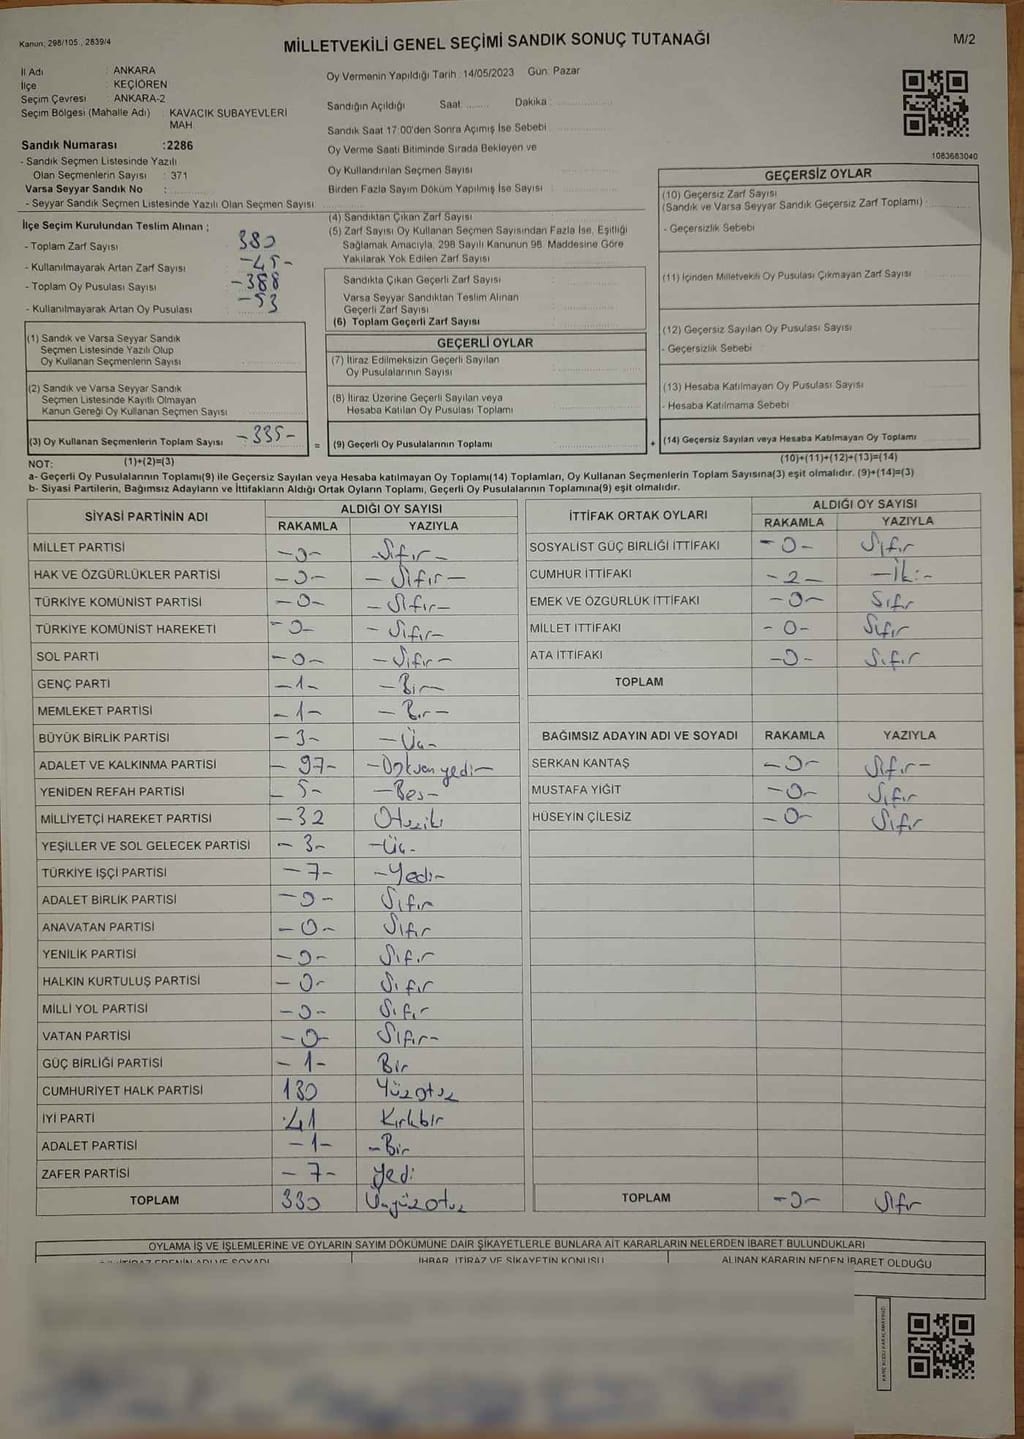 Kanun; 298/105 , 2839/4
MİLLETVEKİLİ GENEL SEÇİMİ SANDIK SONUÇ TUTANAĞI
M/2
İl Adı : ANKARA
İlçe : KEÇİÖREN
Seçim Çevresi : ANKARA-2
Seçim Bölgesi (Mahalle Adı) : KAVACIK SUBAYEVLERİ
MAH
Sandık Numarası :2286
- Sandık Seçmen Listesinde Yazılı
Olan Seçmenlerin Sayısı : 371
Varsa Seyyar Sandık No :
- Seyyar Sandık Seçmen Listesinde Yazılı Olan Seçmen Sayısı
Oy Vermenin Yapıldığı Tarih :14/05/2023 Gün: Pazar
Sandığın Açıldığı Saat: Dakika :
Sandık Saat 17:00'den Sonra Açımış İse Sebebi
Oy Verme Saati Bitiminde Sırada Bekleyen ve
Oy Kullandırılan Seçmen Sayısı
Birden Fazla Sayım Döküm Yapılmış İse Sayısı
1083683040
İlçe Seçim Kurulundan Teslim Alınan ;
- Toplam Zarf Sayısı 380
- Kullanılmayarak Artan Zarf Sayısı -45-
- Toplam Oy Pusulası Sayısı -388
- Kullanılmayarak Artan Oy Pusulası -53
(1) Sandık ve Varsa Seyyar Sandık
Seçmen Listesinde Yazılı Olup
Oy Kullanan Seçmenlerin Sayısı
(2) Sandık ve Varsa Seyyar Sandık
Seçmen Listesinde Kayıtlı Olmayan
Kanun Gereği Oy Kullanan Seçmen Sayısı
(3) Oy Kullanan Seçmenlerin Toplam Sayısı -335-
(4) Sandıktan Çıkan Zarf Sayısı
(5) Zarf Sayısı Oy Kullanan Seçmen Sayısından Fazla İse, Eşitliği
Sağlamak Amacıyla, 298 Sayılı Kanunun 98. Maddesine Göre
Yakılarak Yok Edilen Zarf Sayısı
Sandıkta Çıkan Geçerli Zarf Sayısı
Varsa Seyyar Sandıktan Teslim Alınan
Geçerli Zarf Sayısı
(6) Toplam Geçerli Zarf Sayısı
GEÇERLİ OYLAR
(7) İtiraz Edilmeksizin Geçerli Sayılan
Oy Pusulalarının Sayısı
(8) İtiraz Üzerine Geçerli Sayılan veya
Hesaba Katılan Oy Pusulası Toplamı
= (9) Geçerli Oy Pusulalarının Toplamı +
GEÇERSİZ OYLAR
(10) Geçersiz Zarf Sayısı
(Sandık ve Varsa Seyyar Sandık Geçersiz Zarf Toplamı)
- Geçersizlik Sebebi
(11) İçinden Milletvekili Oy Pusulası Çıkmayan Zarf Sayısı
(12) Geçersiz Sayılan Oy Pusulası Sayısı
- Geçersizlik Sebebi
(13) Hesaba Katılmayan Oy Pusulası Sayısı
- Hesaba Katılmama Sebebi
(14) Geçersiz Sayılan veya Hesaba Katılmayan Oy Toplamı
NOT: (1)+(2)=(3) (10)+(11)+(12)+(13)=(14)
a- Geçerli Oy Pusulalarının Toplamı(9) ile Geçersiz Sayılan veya Hesaba katılmayan Oy Toplamı(14) Toplamları, Oy Kullanan Seçmenlerin Toplam Sayısına(3) eşit olmalıdır. (9)+(14)=(3)
b- Siyasi Partilerin, Bağımsız Adayların ve İttifakların Aldığı Ortak Oyların Toplamı, Geçerli Oy Pusulalarının Toplamına(9) eşit olmalıdır.
SİYASİ PARTİNİN ADI ALDIĞI OY SAYISI
RAKAMLA YAZIYLA
MİLLET PARTİSİ -0- -Sıfır-
HAK VE ÖZGÜRLÜKLER PARTİSİ -0- -Sıfır-
TÜRKİYE KOMÜNİST PARTİSİ -0- -Sıfır-
TÜRKİYE KOMÜNİST HAREKETİ -0- -Sıfır-
SOL PARTİ -0- -Sıfır-
GENÇ PARTİ -1- -Bir-
MEMLEKET PARTİSİ -1- -Bir-
BÜYÜK BİRLİK PARTİSİ -3- -Üç-
ADALET VE KALKINMA PARTİSİ -97- -Doksanyedi-
YENİDEN REFAH PARTİSİ -5- -Beş-
MİLLİYETÇİ HAREKET PARTİSİ -32 Otuziki
YEŞİLLER VE SOL GELECEK PARTİSİ -3- -Üç-
TÜRKİYE İŞÇİ PARTİSİ -7- -Yedi-
ADALET BİRLİK PARTİSİ -0- Sıfır
ANAVATAN PARTİSİ -0- Sıfır
YENİLİK PARTİSİ -0- Sıfır
HALKIN KURTULUŞ PARTİSİ -0- Sıfır
MİLLİ YOL PARTİSİ -0- Sıfır
VATAN PARTİSİ -0- Sıfır-
GÜÇ BİRLİĞİ PARTİSİ -1- Bir
CUMHURİYET HALK PARTİSİ 130 Yüzotuz
İYİ PARTİ 41 Kırkbir
ADALET PARTİSİ -1- -Bir
ZAFER PARTİSİ -7- Yedi
TOPLAM 330 Üçyüzotuz
İTTİFAK ORTAK OYLARI ALDIĞI OY SAYISI
RAKAMLA YAZIYLA
SOSYALİST GÜÇ BİRLİĞİ İTTİFAKI -0- Sıfır
CUMHUR İTTİFAKI -2- -İki-
EMEK VE ÖZGÜRLÜK İTTİFAKI -0- Sıfır
MİLLET İTTİFAKI -0- Sıfır
ATA İTTİFAKI -0- Sıfır
TOPLAM
BAĞIMSIZ ADAYIN ADI VE SOYADI RAKAMLA YAZIYLA
SERKAN KANTAŞ -0- Sıfır-
MUSTAFA YİĞİT -0- Sıfır
HÜSEYİN ÇİLESİZ -0- Sıfır
TOPLAM -0- Sıfır
OYLAMA İŞ VE İŞLEMLERİNE VE OYLARIN SAYIM DÖKÜMÜNE DAİR ŞİKAYETLERLE BUNLARA AİT KARARLARIN NELERDEN İBARET BULUNDUKLARI
İHBAR, İTİRAZ VE ŞİKAYETİN KONUSU ALINAN KARARIN NEDEN İBARET OLDUĞU